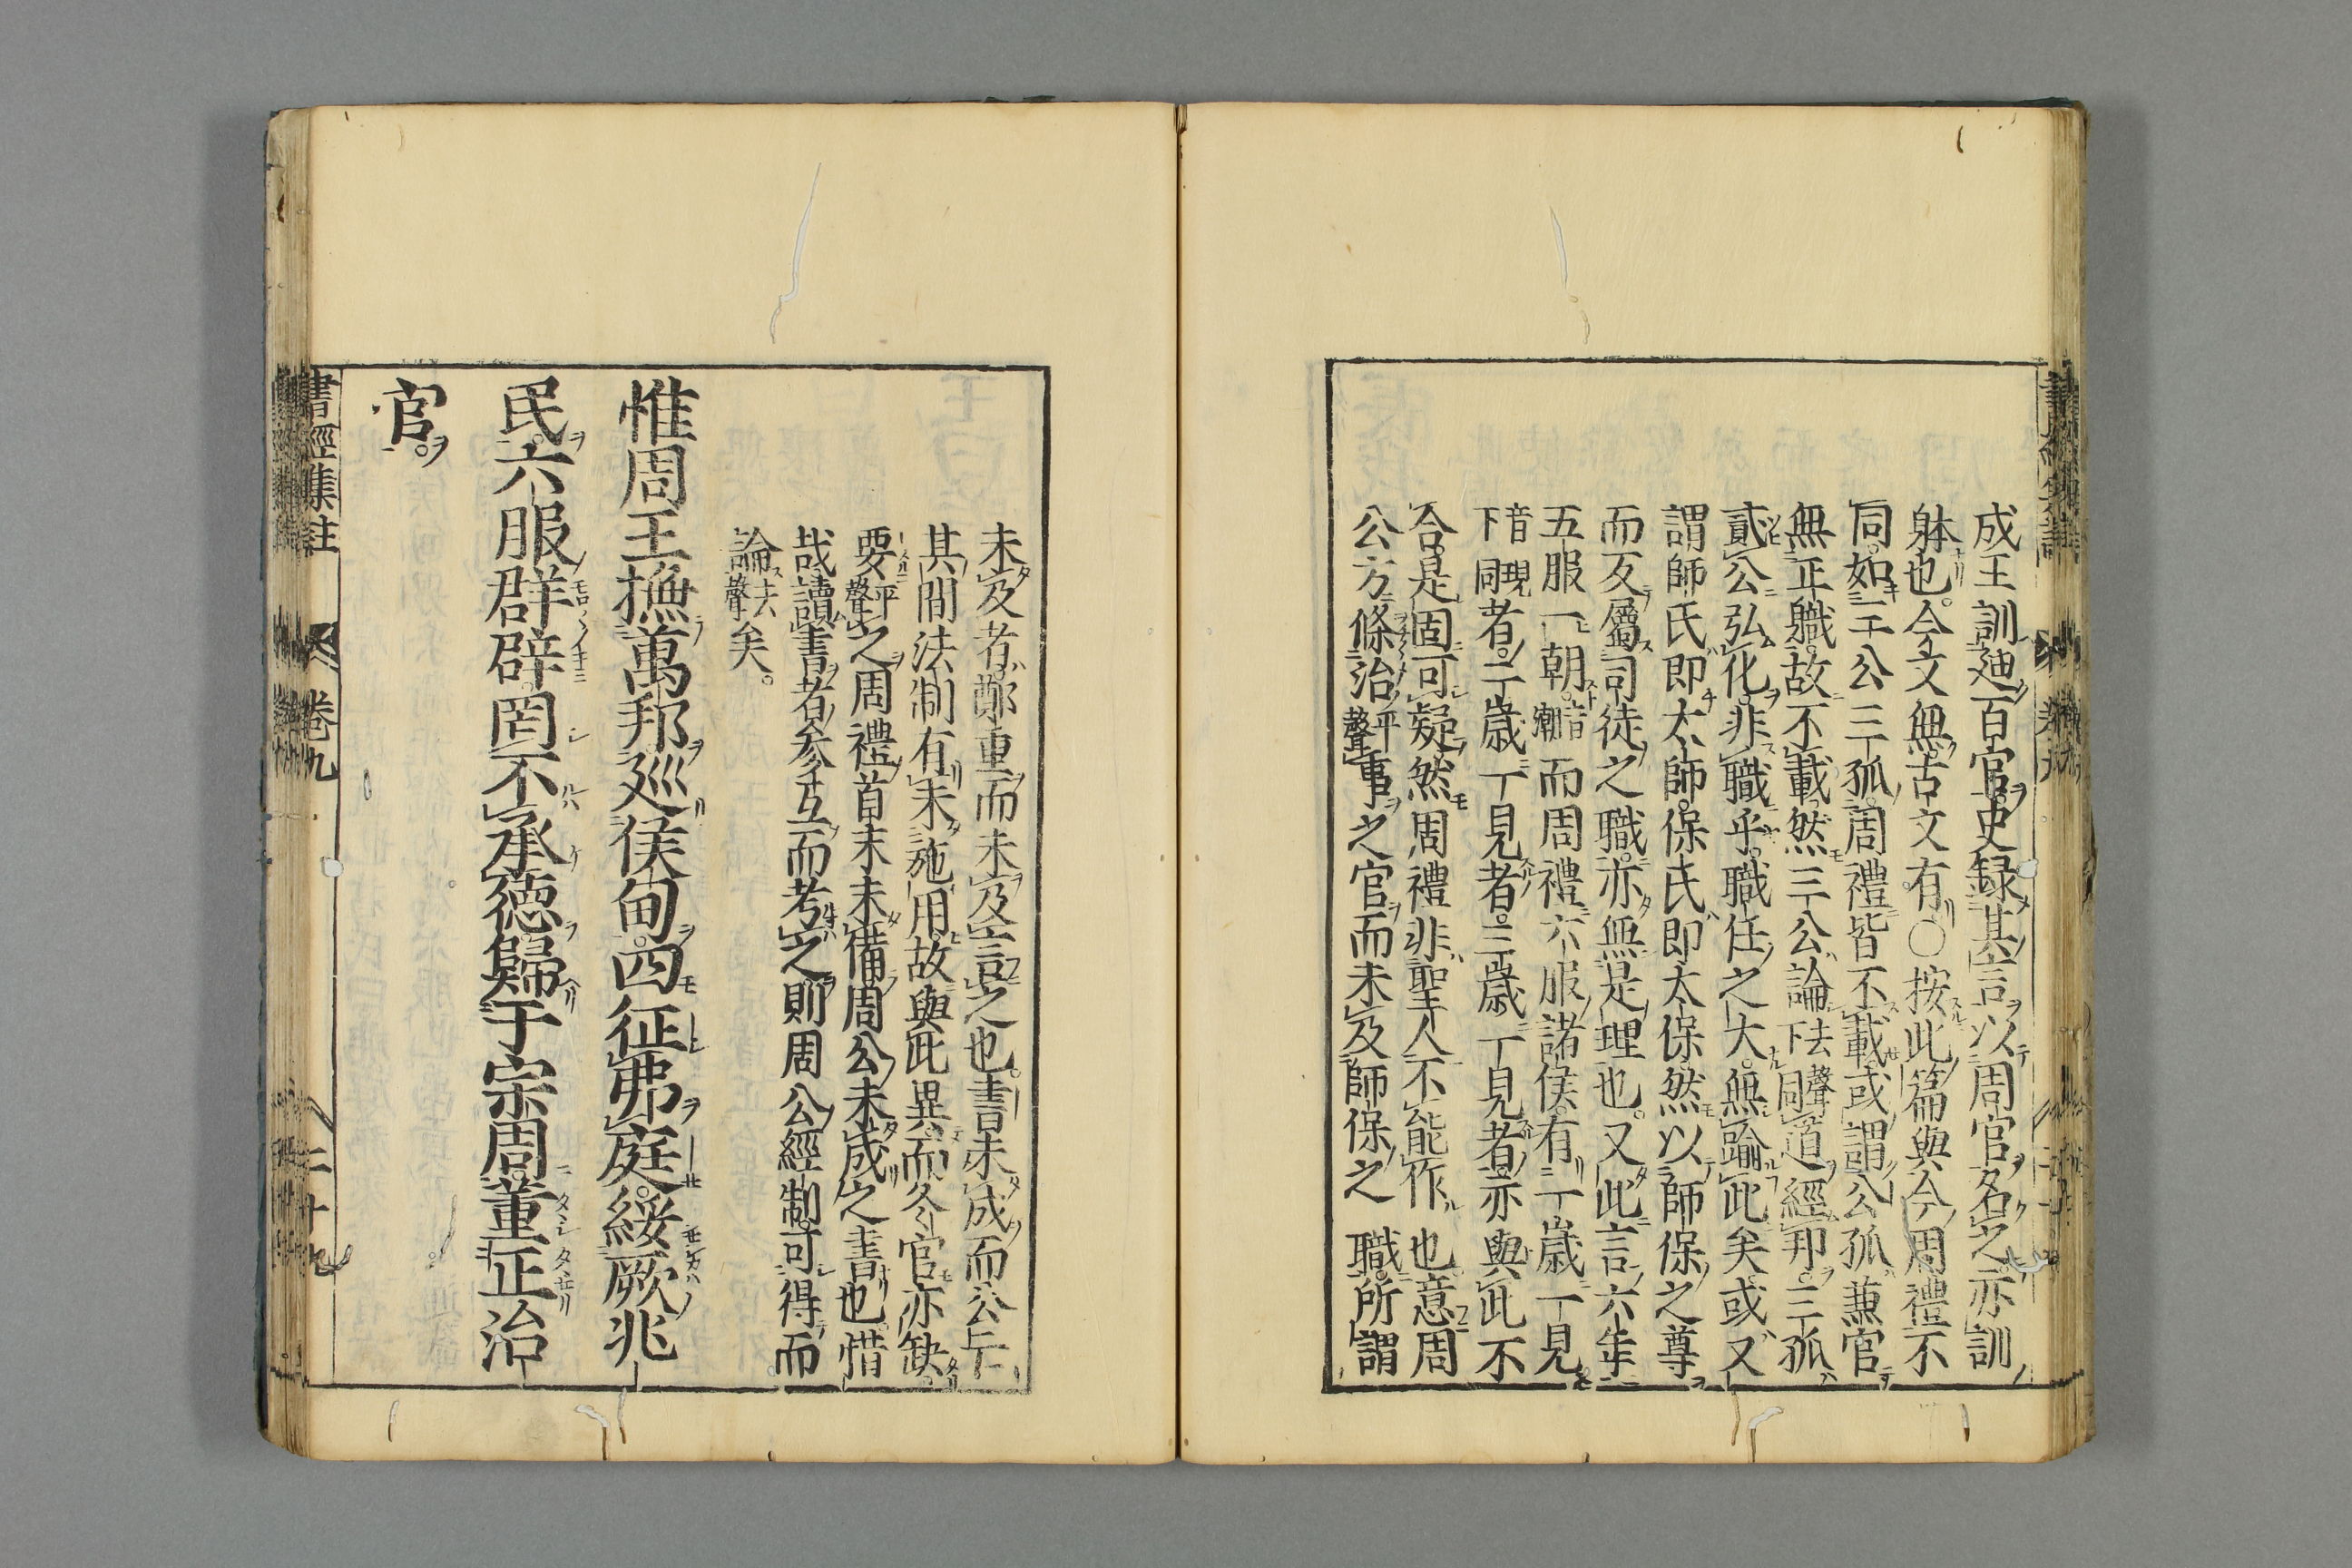 成王訓迪百官史録其言以周官名之亦訓
躰也今文無古文有○按此篇與今周禮不
同如三公三孤周禮皆不載或謂公孤兼官
無正職故不載然三公論去聲下同道經邦三孤
貳公弘化非職乎職任之大無踰此矣或又
謂師氏即太師保氏即太保然以師保之尊
而反屬司徒之職亦無是理也又此言六年
五服一朝音潮而周禮六服諸侯有一歲一見
音現下同者二歲一見者三歲一見者亦與此不
合是固可疑然周禮非聖人不能作也意周
公方條治平聲事之官而未及師保之職所謂
未及者鄭重而未及言之也書未成而公亡
其間法制有未施用故與此異而冬官亦缺
要平聲之周禮首末未備周公未成之書也惜
哉讀書者參互而考之則周公經制可得而
論去聲矣。
惟周王撫萬邦巡侯甸四征弗庭綏厥兆
民六服群辟罔不承德歸于宗周董正治
官
書經集註 卷九 二十九